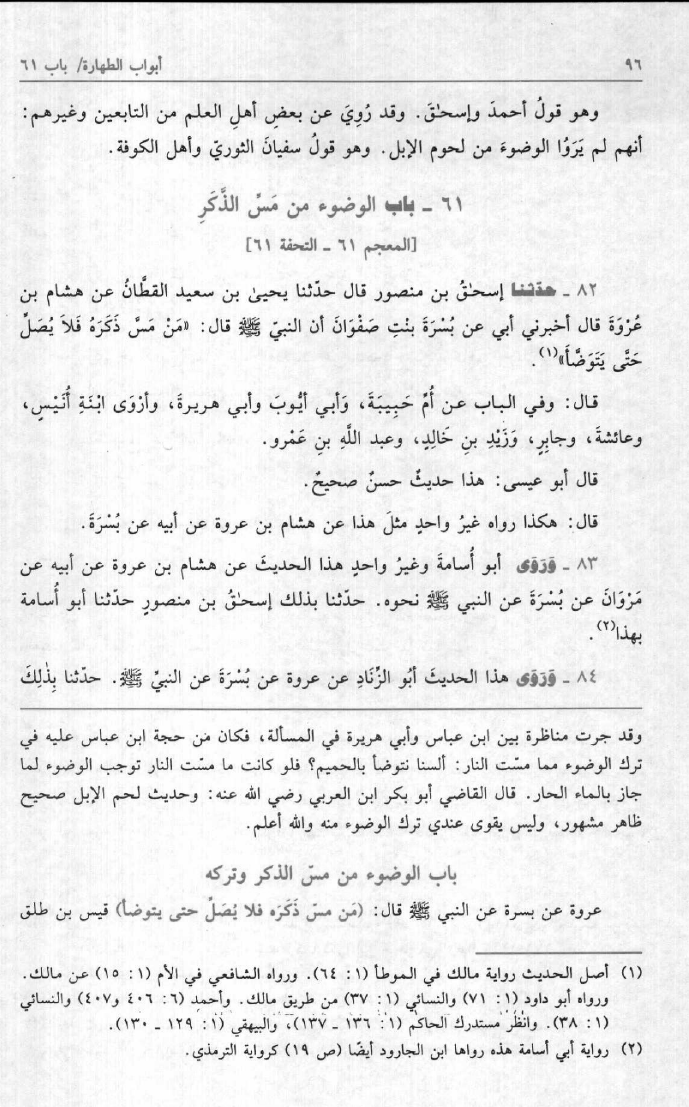 ٩٦
أبواب الطهارة/ باب ٦١
وهو قولُ أحمدَ وإسحٰقَ. وقد رُوِيَ عن بعضِ أهلِ العلم من التابعين وغيرهم:
أنهم لم يَرَوُا الوضوءَ من لحوم الإبل. وهو قولُ سفيانَ الثوريّ وأهل الكوفة.
٦١ ـ باب الوضوء من مَسِّ الذَّكَرِ
[المعجم ٦١ ـ التحفة ٦١]
٨٢ ـ حدّثنا إسحٰقُ بن منصور قال حدّثنا يحيىٰ بن سعيد القطَّانُ عن هشام بن
عُرْوَةَ قال أخبرني أبي عن بُسْرَةَ بنْتِ صَفْوَانَ أن النبيّ ﷺ قال: «مَنْ مَسَّ ذَكَرَهُ فَلاَ يُصَلِّ
حَتَّى يَتَوَضَّأَ»(١).
قـال: وفي البـاب عـن أُمِّ حَبِيبَةَ، وَأبي أيُّوبَ وأبي هـريـرةَ، وأرْوَى ابْنَةِ أُنَيْسٍ،
وعائشةَ، وجابرٍ، وَزَيْدِ بنِ خَالِدٍ، وعبد اللَّهِ بنِ عَمْرو.
قال أبو عيسى: هذا حديثٌ حسنٌ صحيحٌ.
قال: هكذا رواه غيرُ واحدٍ مثلَ هذا عن هشام بن عروة عن أبيه عن بُسْرَةَ.
٨٣ ـ وَرَوَى أبو أُسامةَ وغيرُ واحدٍ هذا الحديثَ عن هشام بن عروة عن أبيه عن
مَرْوَانَ عن بُسْرَةَ عن النبي ﷺ نحوه. حدّثنا بذلك إسحٰقُ بن منصورٍ حدّثنا أبو أُسامة
بهذا(٢).
٨٤ ـ وَرَوَى هذا الحديثَ أبُو الزِّنَادِ عن عروة عن بُسْرَةَ عن النبيِّ ﷺ. حدّثنا بِذٰلِكَ
وقد جرت مناظرة بين ابن عباس وأبي هريرة في المسألة، فكان من حجة ابن عباس عليه في
ترك الوضوء مما مسّت النار: ألسنا نتوضأ بالحميم؟ فلو كانت ما مسّت النار توجب الوضوء لما
جاز بالماء الحار. قال القاضي أبو بكر ابن العربي رضي الله عنه: وحديث لحم الإبل صحيح
ظاهر مشهور، وليس يقوى عندي ترك الوضوء منه والله أعلم.
باب الوضوء من مسّ الذكر وتركه
عروة عن بسرة عن النبي ﷺ قال: (مَن مسّ ذَكَرَه فلا يُصَلِّ حتى يتوضأ) قيس بن طلق
(١) أصل الحديث رواية مالك في الموطأ (١: ٦٤). ورواه الشافعي في الأم (١: ١٥) عن مالك.
ورواه أبو داود (١: ٧١) والنسائي (١: ٣٧) من طريق مالك. وأحمد (٦: ٤٠٦ و٤٠٧) والنسائي
(١: ٣٨). وانظر مستدرك الحاكم (١: ١٣٦ ـ ١٣٧)، والبيهقي (١: ١٢٩ ـ ١٣٠).
(٢) رواية أبي أسامة هذه رواها ابن الجارود أيضًا (ص ١٩) كرواية الترمذي.